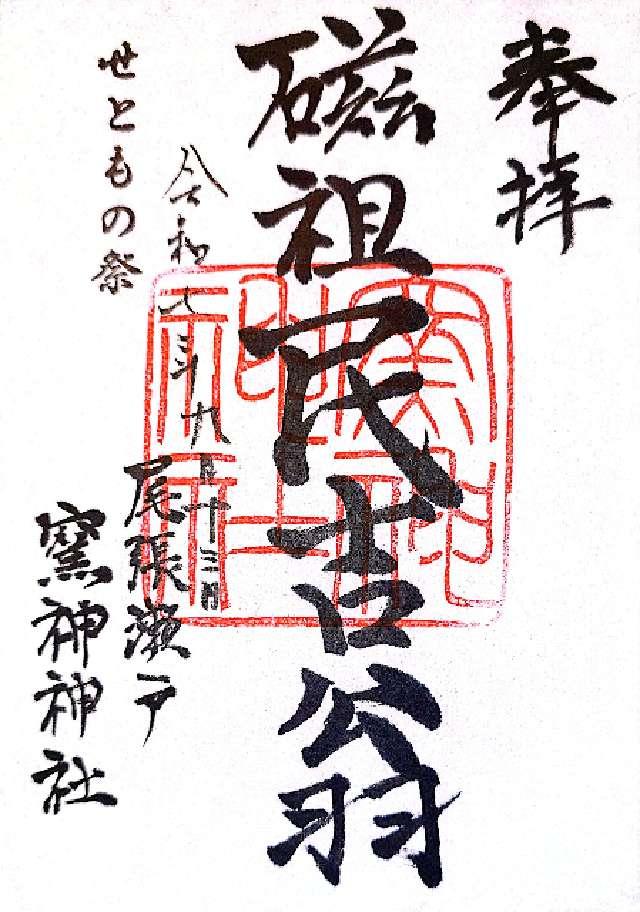 奉拝
磁祖民吉翁
令和七年九月十三日
せともの祭
尾張瀬戸
窯神神社
窯神神社